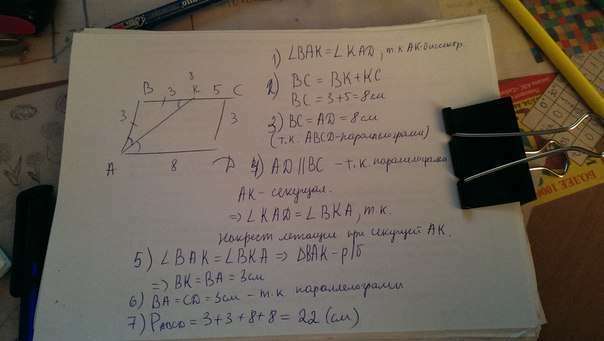 1) ∠BAK = ∠KAD, т.к AK-биссектр.
2) BC = BK + KC
BC = 3+5 = 8см
3) BC = AD = 8см
(т.к. ABCD-параллелограмм)
4) AD || BC - т.к. параллелограмм
AK - секущая.
⇒ ∠KAD = ∠BKA, т.к.
накрест лежащие при секущей AK.
5) ∠BAK = ∠BKA ⇒ ΔBAK - р/б
⇒ BK = BA = 3см
6) BA = CD = 3см - т.к параллелограмм
7) PABCD = 3+3+8+8 = 22 (см)
8
B 3 K 5 C
3 3
A 8 D
БОЛЕЕ